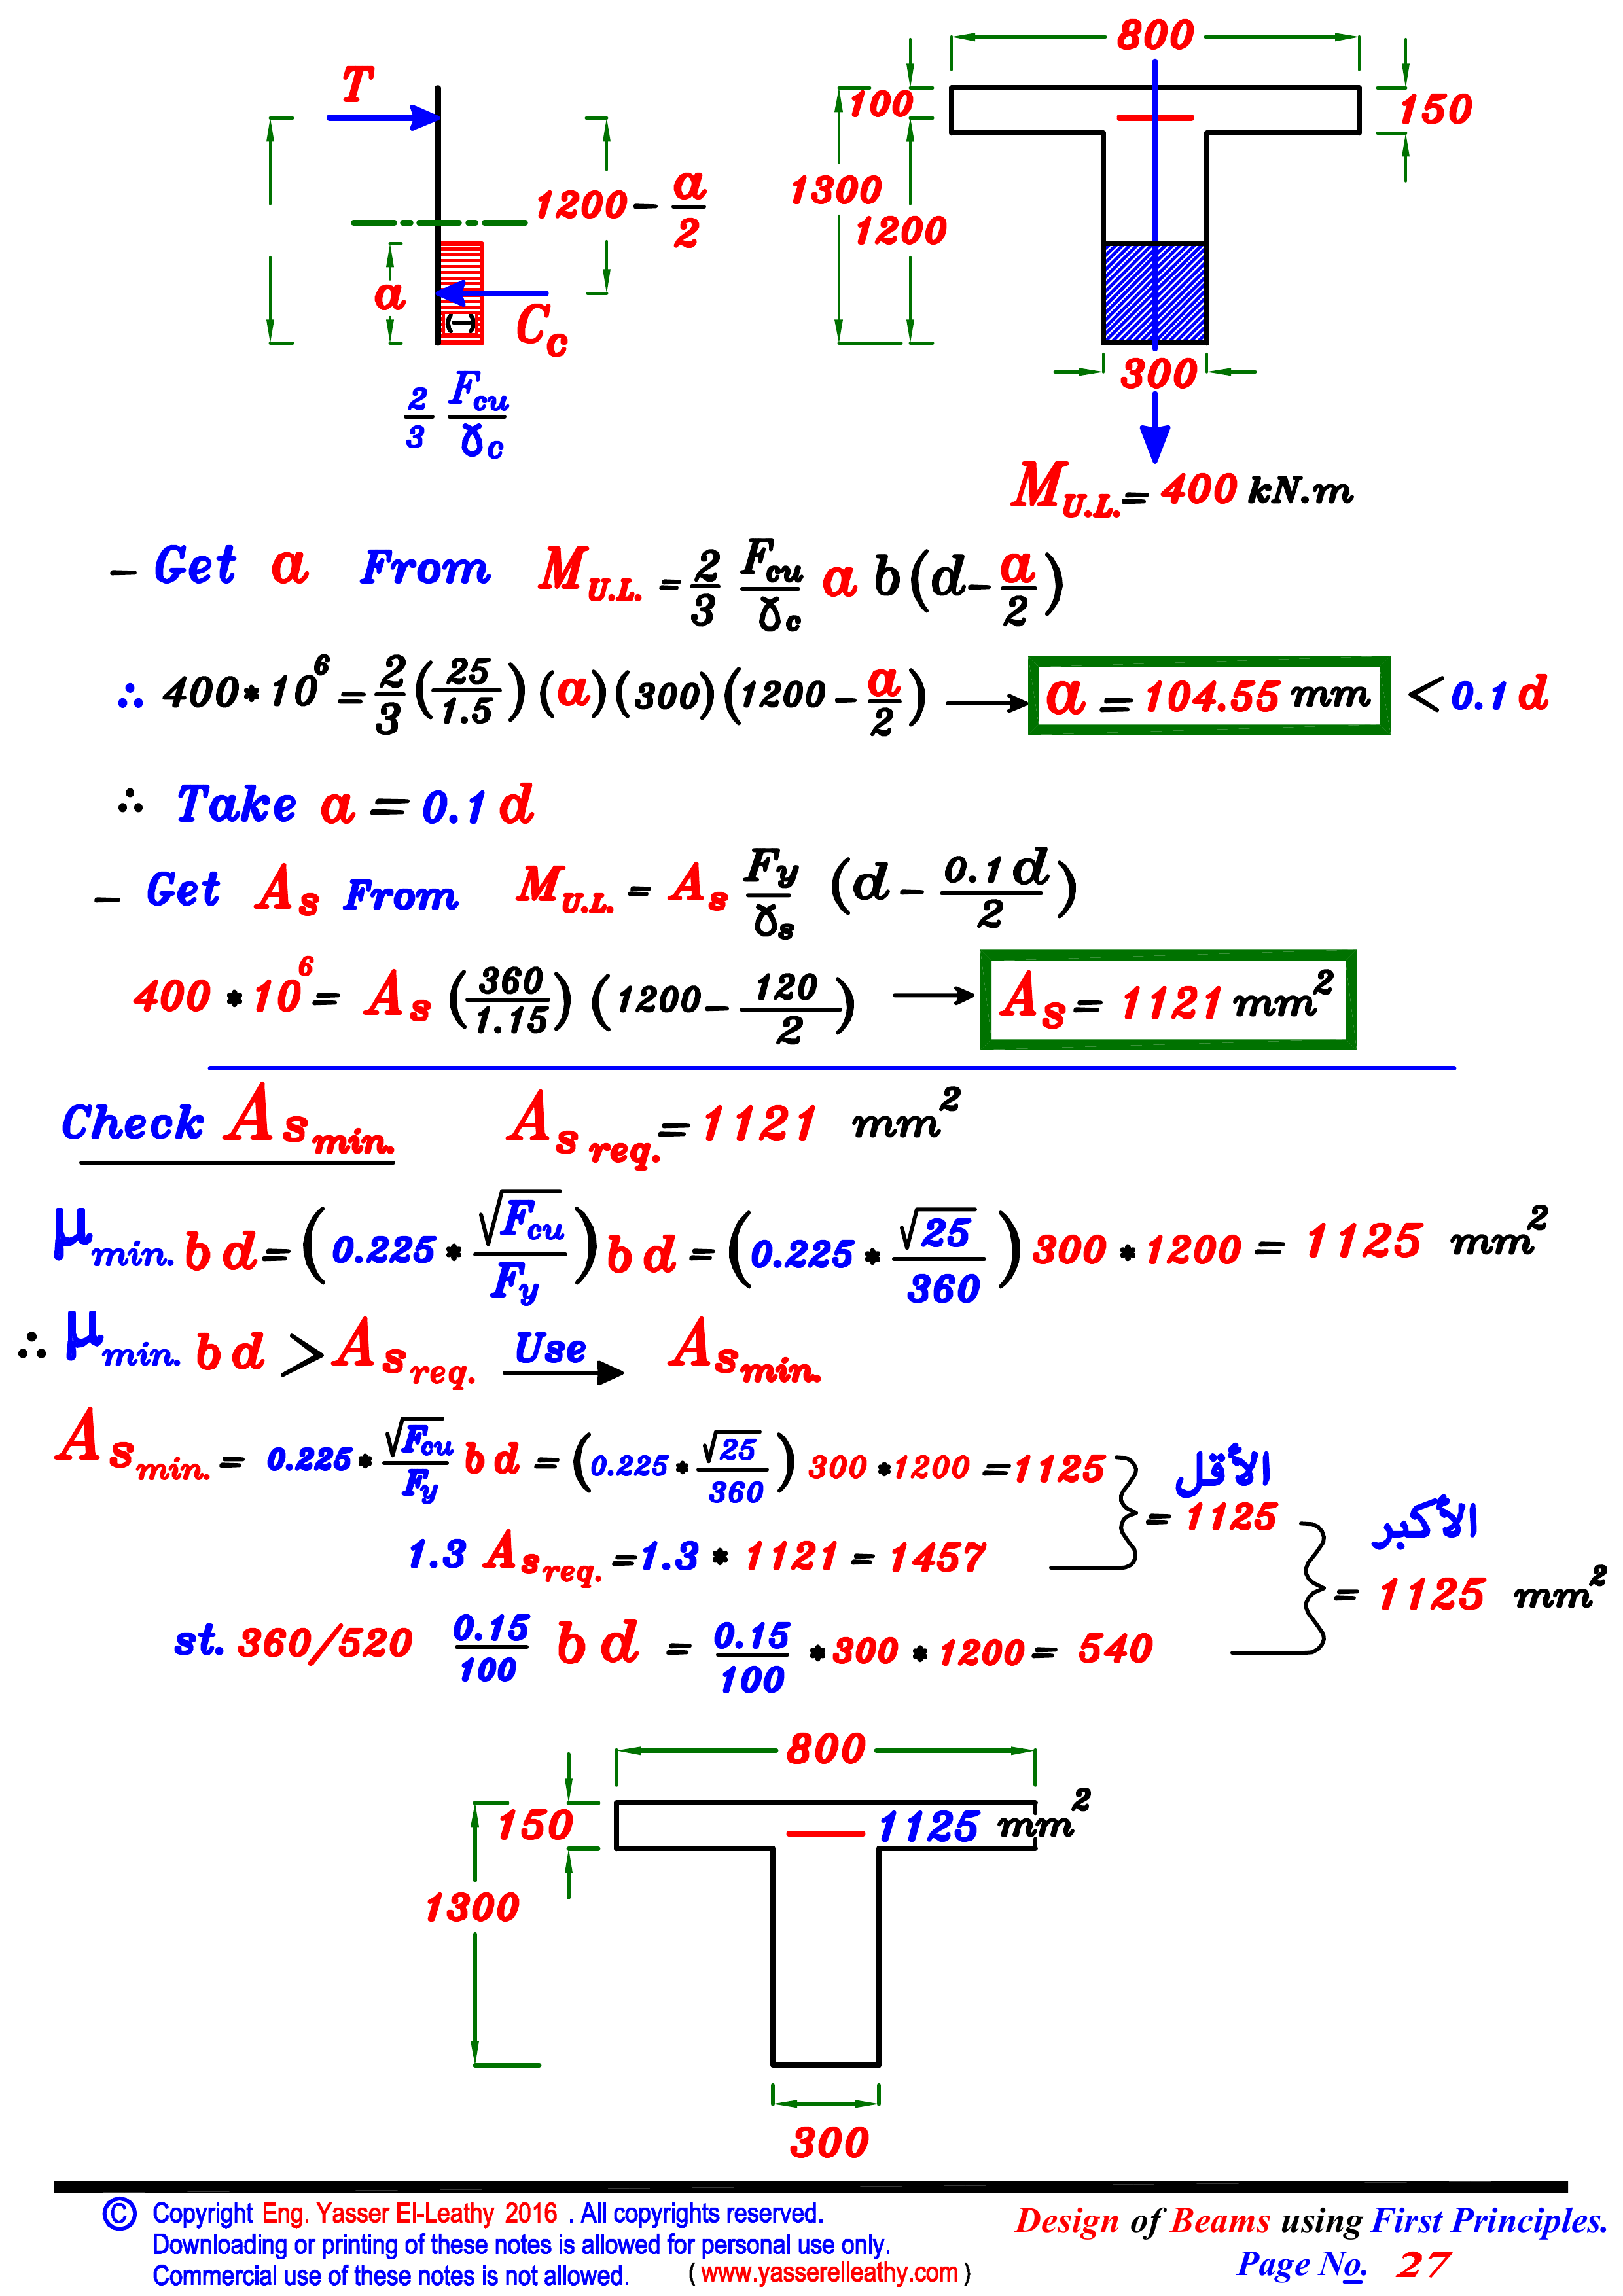 800
T
100
150
1200 - a/2
1300
1200
a
(-)
C_c
300
2/3 F_cu/γ_c
M_U.L. = 400 kN.m
- Get a From M_U.L. = 2/3 F_cu/γ_c a b (d - a/2)
∴ 400 * 10^6 = 2/3 (25/1.5) (a) (300) (1200 - a/2) → a = 104.55 mm < 0.1 d
∴ Take a = 0.1 d
- Get A_s From M_U.L. = A_s F_y/γ_s (d - 0.1 d/2)
400 * 10^6 = A_s (360/1.15) (1200 - 120/2) → A_s = 1121 mm²
Check A_s min. A_s req. = 1121 mm²
μ_min. b d = (0.225 * √F_cu/F_y) b d = (0.225 * √25/360) 300 * 1200 = 1125 mm²
∴ μ_min. b d > A_s req. Use → A_s min.
A_s min. = 0.225 * √F_cu/F_y b d = (0.225 * √25/360) 300 * 1200 = 1125
الأقل
= 1125
الأكبر
1.3 A_s req. = 1.3 * 1121 = 1457
= 1125 mm²
st. 360/520 0.15/100 b d = 0.15/100 * 300 * 1200 = 540
800
150
1125 mm²
1300
300
© Copyright Eng. Yasser El-Leathy 2016 . All copyrights reserved.
Downloading or printing of these notes is allowed for personal use only.
Commercial use of these notes is not allowed. ( www.yasserelleathy.com )
Design of Beams using First Principles.
Page No. 27